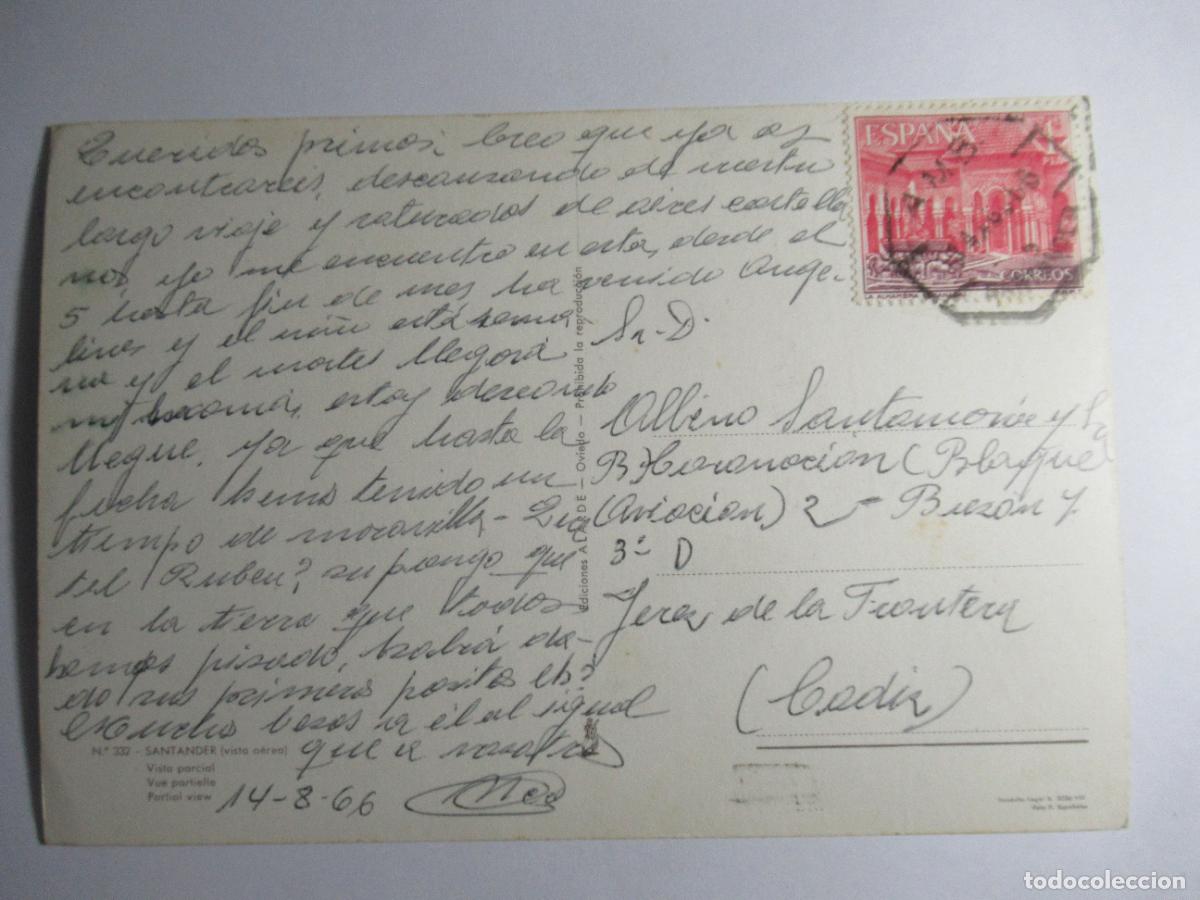 Queridos primos, Creo que ya os
encontrareis, descanzando de vuestro
largo viaje y saturados de aires castella
nos, yo me encuentro en esta, desde el
5 hasta fin de mes, ha venido Ange-
lines y el niño, está semana
y el martes llegará
estoy deseando
llegue, ya que hasta la
fecha hemos tenido un
tiempo de maravilla - Que
tel Ruben? supongo que
en la tierra que todos
hemos pisado, habrá da-
do sus primeros pasitos eh?
Muchos besos a él al igual
que a vosotros
14-8-66
ESPAÑA
CORREOS
LA ALHAMBRA
Sr. D.
Albino Santamaria y Sra
B. (Bloque
(Aviación) 2 - Buzón 7
3º D
Jerez de la Frontera
(Cadiz)
Ediciones ALARDE - Oviedo - Prohibida la reproducción
N.º 332 - SANTANDER (vista aérea)
Vista parcial
Vue partielle
Partial view
todocoleccion